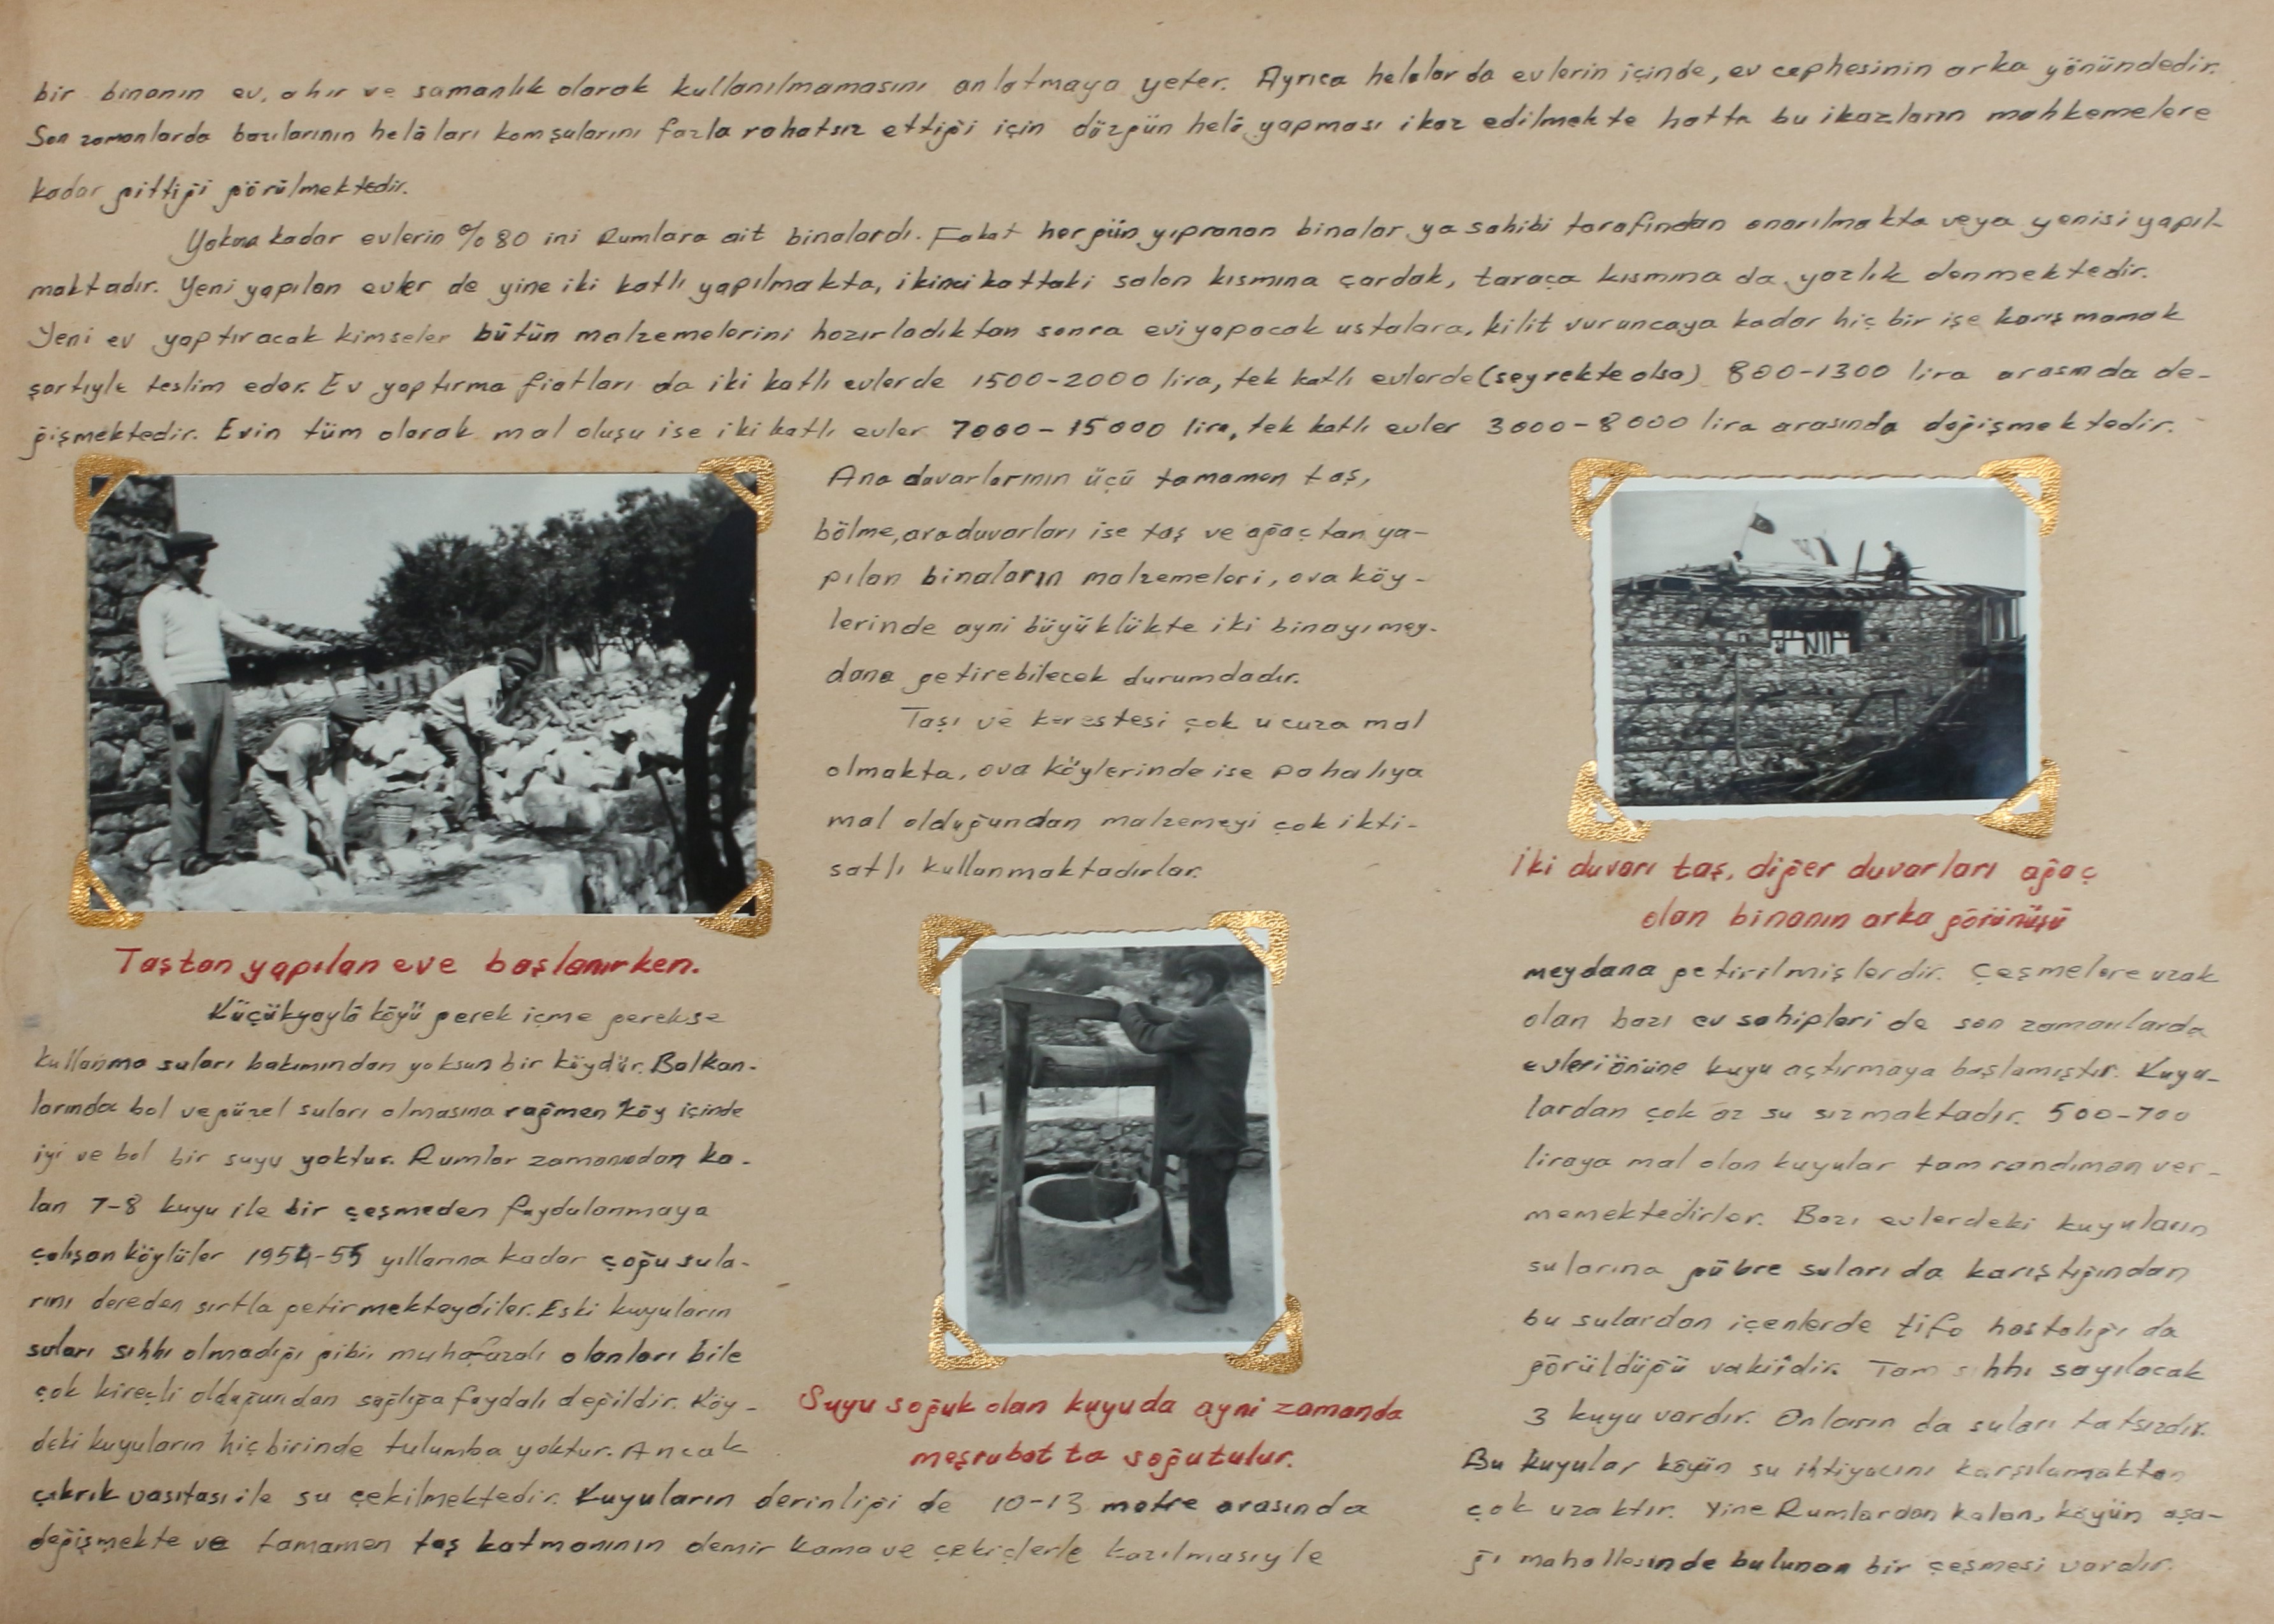 bir binanın ev, ahır ve samanlık olarak kullanılmamasını anlatmaya yeter. Ayrıca helalar da evlerin içinde, ev cephesinin arka yönündedir.
Son zamanlarda bazılarının helâları komşularını fazla rahatsız ettiği için düzgün helâ yapması ikaz edilmekte hatta bu ikazların mahkemelere
kadar gittiği görülmektedir.
Yakına kadar evlerin %80 ini Rumlara ait binalardı. Fakat hergün yıpranan binalar ya sahibi tarafından onarılmakta veya yenisi yapıl-
maktadır. Yeni yapılan evler de yine iki katlı yapılmakta, ikinci kattaki salon kısmına çardak, taraça kısmına da yazlık denmektedir.
Yeni ev yaptıracak kimseler bütün malzemelerini hazırladıktan sonra evi yapacak ustalara, kilit vuruncaya kadar hiç bir işe karışmamak
şartıyle teslim eder. Ev yaptırma fiatları da iki katlı evlerde 1500-2000 lira, tek katlı evlerde (seyrekte olsa) 800-1300 lira arasında de-
ğişmektedir. Evin tüm olarak mal oluşu ise iki katlı evler 7000-15000 lira, tek katlı evler 3000-8000 lira arasında değişmektedir.
Ana duvarlarının üçü tamamen taş,
bölme, ara duvarları ise taş ve ağaçtan ya-
pılan binaların malzemeleri, ova köy-
lerinde ayni büyüklükte iki binayı mey-
dana getirebilecek durumdadır.
Taşı ve kerestesi çok ucuza mal
olmakta, ova köylerinde ise pahalıya
mal olduğundan malzemeyi çok ikti-
satlı kullanmaktadırlar.
Taştan yapılan eve başlanırken.
Küçükyaylâ köyü gerek içme gerekse
kullanma suları bakımından yoksun bir köydür. Balkan-
larında bol ve güzel suları olmasına rağmen köy içinde
iyi ve bol bir suyu yoktur. Rumlar zamanından ka-
lan 7-8 kuyu ile bir çeşmeden faydalanmaya
çalışan köylüler 1954-55 yıllarına kadar çoğu sula-
rını dereden sırtla getirmekteydiler. Eski kuyuların
suları sıhhı olmadığı gibi, muhafazalı olanları bile
çok kireçli olduğundan sağlığa faydalı değildir. Köy-
deki kuyuların hiç birinde tulumba yoktur. Ancak
çıkrık vasıtası ile su çekilmektedir. Kuyuların derinliği de 10-13 metre arasında
değişmekte ve tamamen taş katmanının demir kama ve çekiçlerle kazılmasıyle
Suyu soğuk olan kuyuda ayni zamanda
meşrubat ta soğutulur.
İki duvarı taş, diğer duvarları ağaç
olan binanın arka görünüşü
meydana getirilmişlerdir. Çeşmelere uzak
olan bazı ev sahipleri de son zamanlarda
evleri önüne kuyu açtırmaya başlamıştır. Kuyu-
lardan çok az su sızmaktadır. 500-700
liraya mal olan kuyular tam randıman ver-
memektedirler. Bazı evlerdeki kuyuların
sularına gübre suları da karıştığından
bu sulardan içenlerde tifo hastalığı da
görüldüğü vakiidir. Tam sıhhı sayılacak
3 kuyu vardır. Onların da suları tatsızdır.
Bu kuyular köyün su ihtiyacını karşılamaktan
çok uzaktır. Yine Rumlardan kalan, köyün aşa-
ğı mahallesinde bulunan bir çeşmesi vardır.